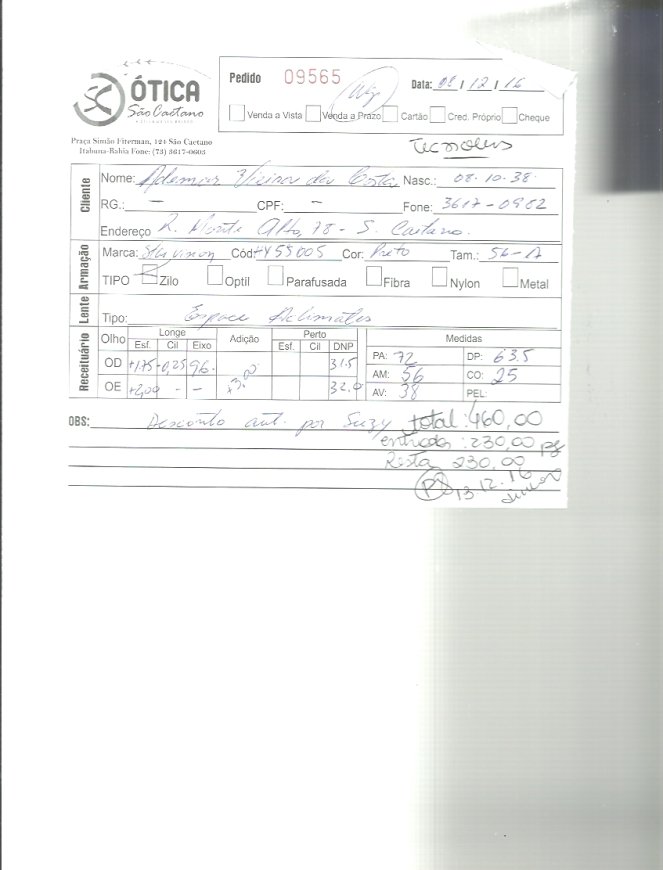 ÓTICA
São Caetano
Praça Simão Fiterman, 121 São Caetano
Itabuna-Bahia Fone: (73) 3617-0603
Pedido 09565 Data: 08 / 12 / 16
Venda a Vista Venda a Prazo Cartão Cred. Próprio Cheque
Cliente
Nome: Ademar Vieira da Costa Nasc.: 08.10.38
RG.: — CPF: — Fone: 3617-0902
Endereço R. Monte Alto, 78 - S. Caetano.
Armação
Marca: Cód: HY55005 Cor. Preto Tam.: 56-A
TIPO Zilo Optil Parafusada Fibra Nylon Metal
Lente
Tipo: Espace
Receituário
Olho Longe Adição Perto Medidas
Esf. Cil Eixo Esf. Cil DNP
OD +1,75 -0,25 96. 31.5 PA: 72 DP: 63.5
+3,00 AM: 56 CO: 25
OE +2,00 - - 32.0 AV: 38 PEL:
OBS: Desconto aut. por Suzy total: 460,00
entrada: 230,00 pg
Resta 230,00
PG 13.12.16
Junior